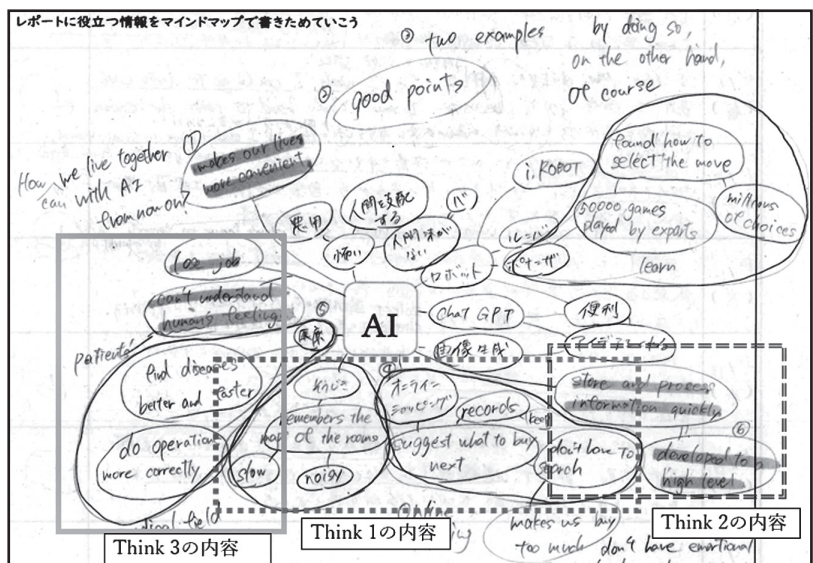 レポートに役立つ情報をマインドマップで書きためていこう
③ two examples
by doing so,
on the other hand,
of course
② good points
① makes our lives
more convenient
How can we live together
with AI
from now on?
悪用
怖い
人間を支配
する
人間味が
ない
ロボット
i,ROBOT
ルンバ
found how to
select the move
50000 games
played by experts
millions
of choices
learn
AI
Chat GPT
便利
画像生成
lose job
can't understand
human's feeling
patients'
⑤
医療
find diseases
better and faster
do operation
more correctly
そうじき
remembers the
map of the rooms
slow
noisy
④
オンライン
ショッピング
records
suggest what to buy
next
don't have to
search
store and process
information quickly
⑥
developed to a
high level
makes us buy
too much
don't have emotional
field
Think 1の内容
Think 2の内容
Think 3の内容